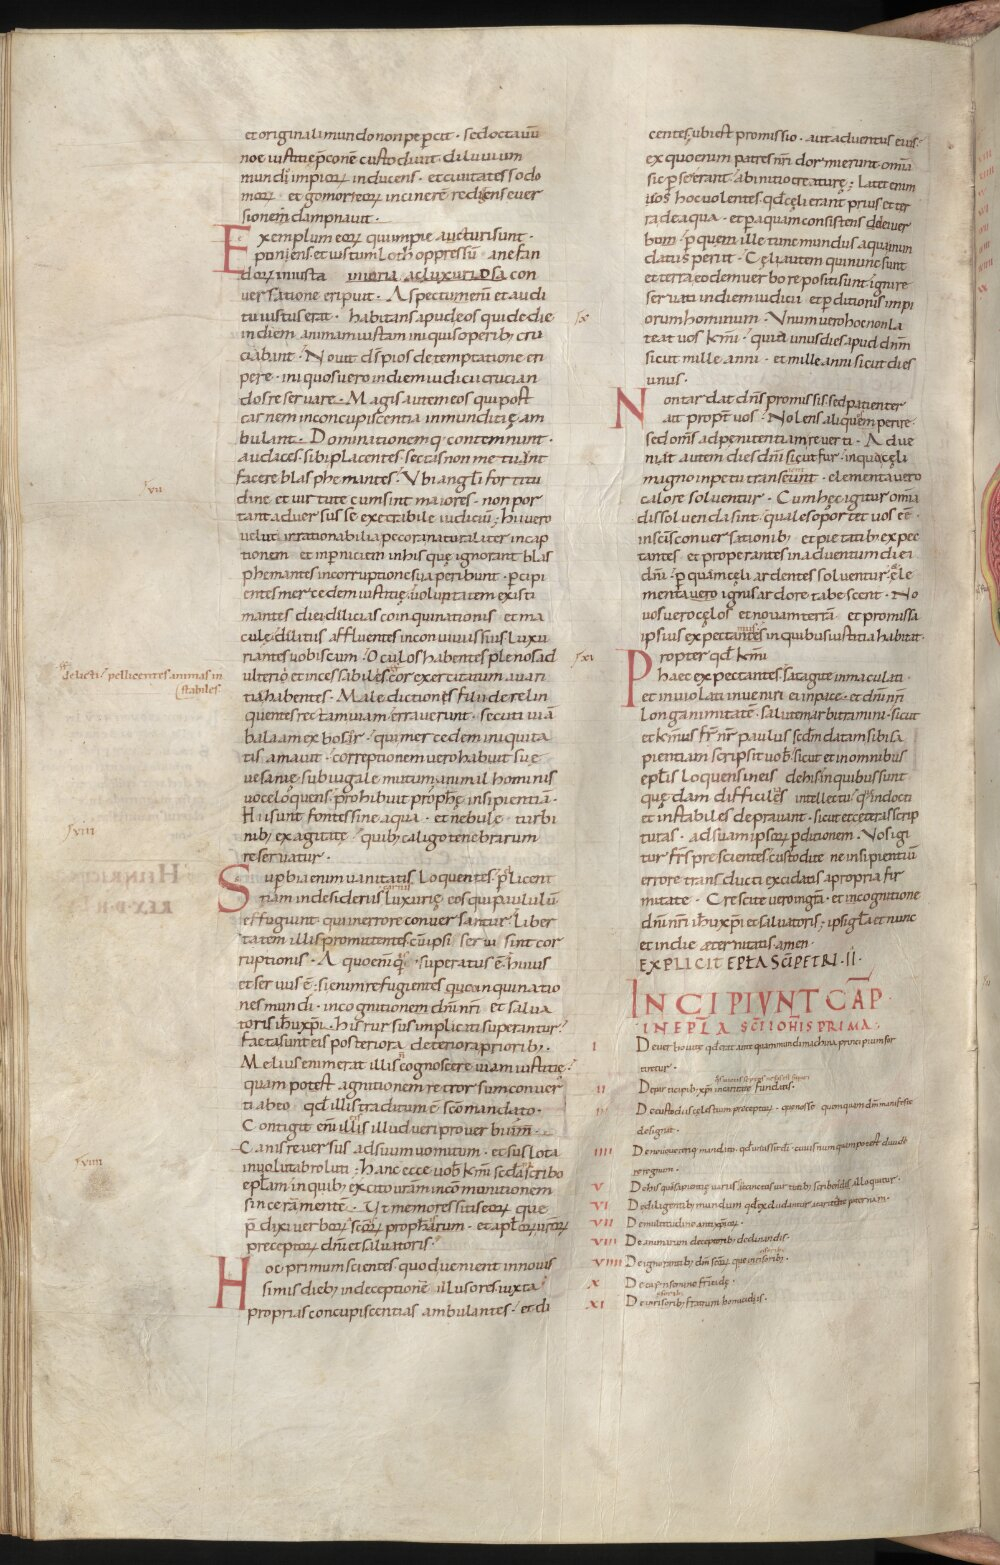 et originali mundo non peꝑcit · sed octauū
noe iustitię p̄conē custodiuit · diluuium
mundi impioꝝ inducens · et ciuitates sodo
moꝝ · et gomorreoꝝ in cinerē redigens euer
sionem dampnauit ·
Exemplum eoꝝ qui impie aucturi sunt ·
poniens · et iustum loth oppressū a nefan
doꝝ iniusta iniuria ac luxuriosa con
uersatione eripuit · Aspectu enim et audi
tu iustus erat · habitans apud eos qui de die
in diem animam iustam iniquis operibꝫ cru
ciabant · Nouit dn̄s pios de temptatione eri
pere · iniquos uero in diem iudicii crucian
dos reseruare · Magis autem eos qui post
carnem in concupiscentia inmunditię am
bulant · Dominationemqꝫ contemnunt ·
audaces · sibi placentes · sectas non metuunt
facere blasphemantes · Vbi angl̄i fortitu
dine et uirtute cum sint maiores · non por
tant aduersus se execrabile iudiciū ; hi uero
uelut irrationabilia pecora naturaliter in cap
tionem et in ꝑniciem in his quę ignorant blas
phemantes in corruptione sua peribunt · ꝑcipi
entes mercedem iustitię uoluptatem existi
mantes diei delicias coinquinationis et ma
culę deliciis affluentes in conuiuiis suis luxu
riantes uobiscum · Oculos habentes plenos ad
ulterio et incessabiles · cor exercitatum auari
tia habentes · Maledictiones filii derelin
quentes rectam uiam · errauerunt · secuti uiā
balaam ex bosor · qui mercedem iniquita
tis amauit · correptionem uero habuit suę
uesanię subiugale mutum animal hominis
uoce loquens · prohibuit prophetę insipientiā ·
Hii sunt fontes sine aqua · et nebulę turbi
nibꝫ exagitatę · quibꝫ caligo tenebrarum
reseruatur ·
Superbia enim uanitatis loquentes · pellicent
carnis
in desideriis luxurię eos qui paululū
effugiunt · qui in errore conuersantur · Liber
tatem illis promittentes cū ipsi serui sint cor
ruptionis · A quo enī quis superatus ē · huius
et seruus ē ; si enim refugientes quoinquinatio
nes mundi · in cognitionem dn̄i nr̄i et salua
toris ih̄u xp̄i · his rursus implicati superantur ·
facta sunt eis posteriora deteriora prioribꝫ ·
Melius enim erat illis n̄ cognoscere uiam iustitię ·
quam post agnitionem retrorsum conuer
ti ab eo qd̄ illis traditum ē sc̄o mandato ·
Contigit enī illis illud ueri prouerbium ·
Canis reuersus ad suum uomitum · et sus lota
in uolutabro luti ; Hanc ecce uob̄ km̄i scd̄am scribo
epl̄am in quibꝫ excito ur̄am in cōmonitionem
sinceram mentē · Vt memores sitis eoꝝ que
p̄dixi uerboꝝ sc̄oꝝ propharum · et apl̄oꝝ uroꝝ
preceptoꝝ dm̄i et saluatoris ·
Hoc primum scientes quod uenient in nouis
simis diebꝫ in deceptione illusores iuxta
proprias concupiscentias ambulantes · et di
vii
delicti / pellicentes animas in
stabiles
viii
viiii
centes · ubi est promissio aut aduentus eius ·
ex quo enim patres nr̄i dormierunt · omia
sic perseuerant · ab initio creaturę ; Latet enim
uos hoc uolentes · qd̄ cęli erant prius et ter
ra de aqua et ꝑ aquam consistens dei uer
bum · ꝑ quem ille tunc mundus aqua inun
datus periit · Cęli autem qui nunc sunt
et terra eodem uerbo repositi sunt · igni re
seruati in diem iudicii et ꝑditionis impi
orum hominum · Vnum uero hoc non la
teat uos km̄i · quia unus dies apud dn̄m
sicut mille anni · et mille anni sicut dies
unus ·
Non tardat dn̄s promissis sed patienter
ait propt̄ uos · Nolens aliquem perire
sed om̄s ad pęnitentiam reuerti · Adue
niat autem dies dn̄i sicut fur · in qua cęli
magno inpetu transeunt · elementa uero
calore soluentur · Cum hęc igitur omīa
dissoluenda sint · quales oportet uos eē
in sc̄is conuersationibꝫ et pietatibꝫ expec
tantes et properantes in aduentum diei
dn̄i · ꝑ quam cęli ardentes soluentur · ele
menta uero ignis ardore tabescent · No
uos uero cęlos et nouam terrā et promissa
ipsius expectamus in quibus iustitia habitat ·
Propter qd̄ km̄i
haec expectantes · satagite inmaculati ·
et inuiolati inueniri ei in pace · et dn̄i nr̄i
longanimitatē · salutem arbitramini · sicut
et km̄us fr̄ nr̄ paulus scdm datam sibi sa
pientiam scripsit uob̄ · sicut et in omnibus
epl̄is loquens in eis de his in quibus sunt
quędam difficiles intellectu · quę indocti
et instabiles deprauant · sicut et ceteras scrip
turas · ad suam ipsoꝝ ꝑditionem · Vos igi
tur fr̄s prescientes custodite · ne insipientiū
errore transducti excidatis a propria fir
mitate · Crescite uero in gr̄a · et in cognitione
dn̄i nr̄i ih̄u xp̄i et saluatoris ; ipsi gl̄a et nunc
et in die aeternitatis amen ·
EXPLICIT EPL̄A SC̄I PETRI · II ·
x
xi
INCIPIVNT CAP̄
IN EPL̄A SC̄I IOHĪS PRIMA ·
I De uerbo uitę qd̄ erat ante quam mundi machina principium for
tiretur ·
II De participibꝫ xp̄i in caritate fundatis ·
III De custodius cęlestium preceptoꝝ · quo nosse quemquam dm̄ manifeste
designat ·
IIII De nouo ueteriqꝫ mandato
ret regnum ·
V De his quę sapientię
VI De diligentibꝫ mundum qd̄ excludantur a caritate paternam ·
VII De multitudine antixp̄oꝝ ·
VIII De animarum deceptoribꝫ declinandis ·
VIIII De ignorantibꝫ dm̄
X De caī
XI De fratrum homicidiis ·